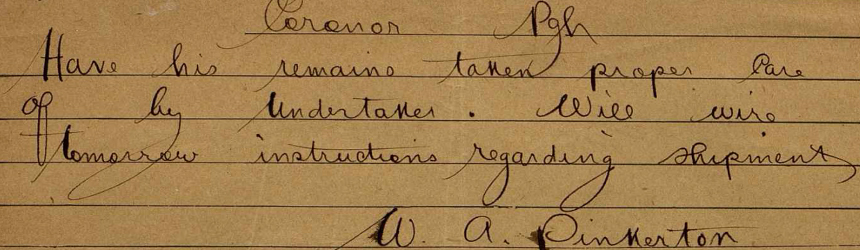 Coronor Pgh
Have his remains taken proper Care
of by Undertaker. Will wire
tomorrow instructions regarding shipment
W. A. Pinkerton